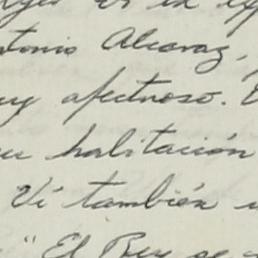 Antonio Alcaraz,
muy afectuoso.
su habitación
Ví también
"El Rey se